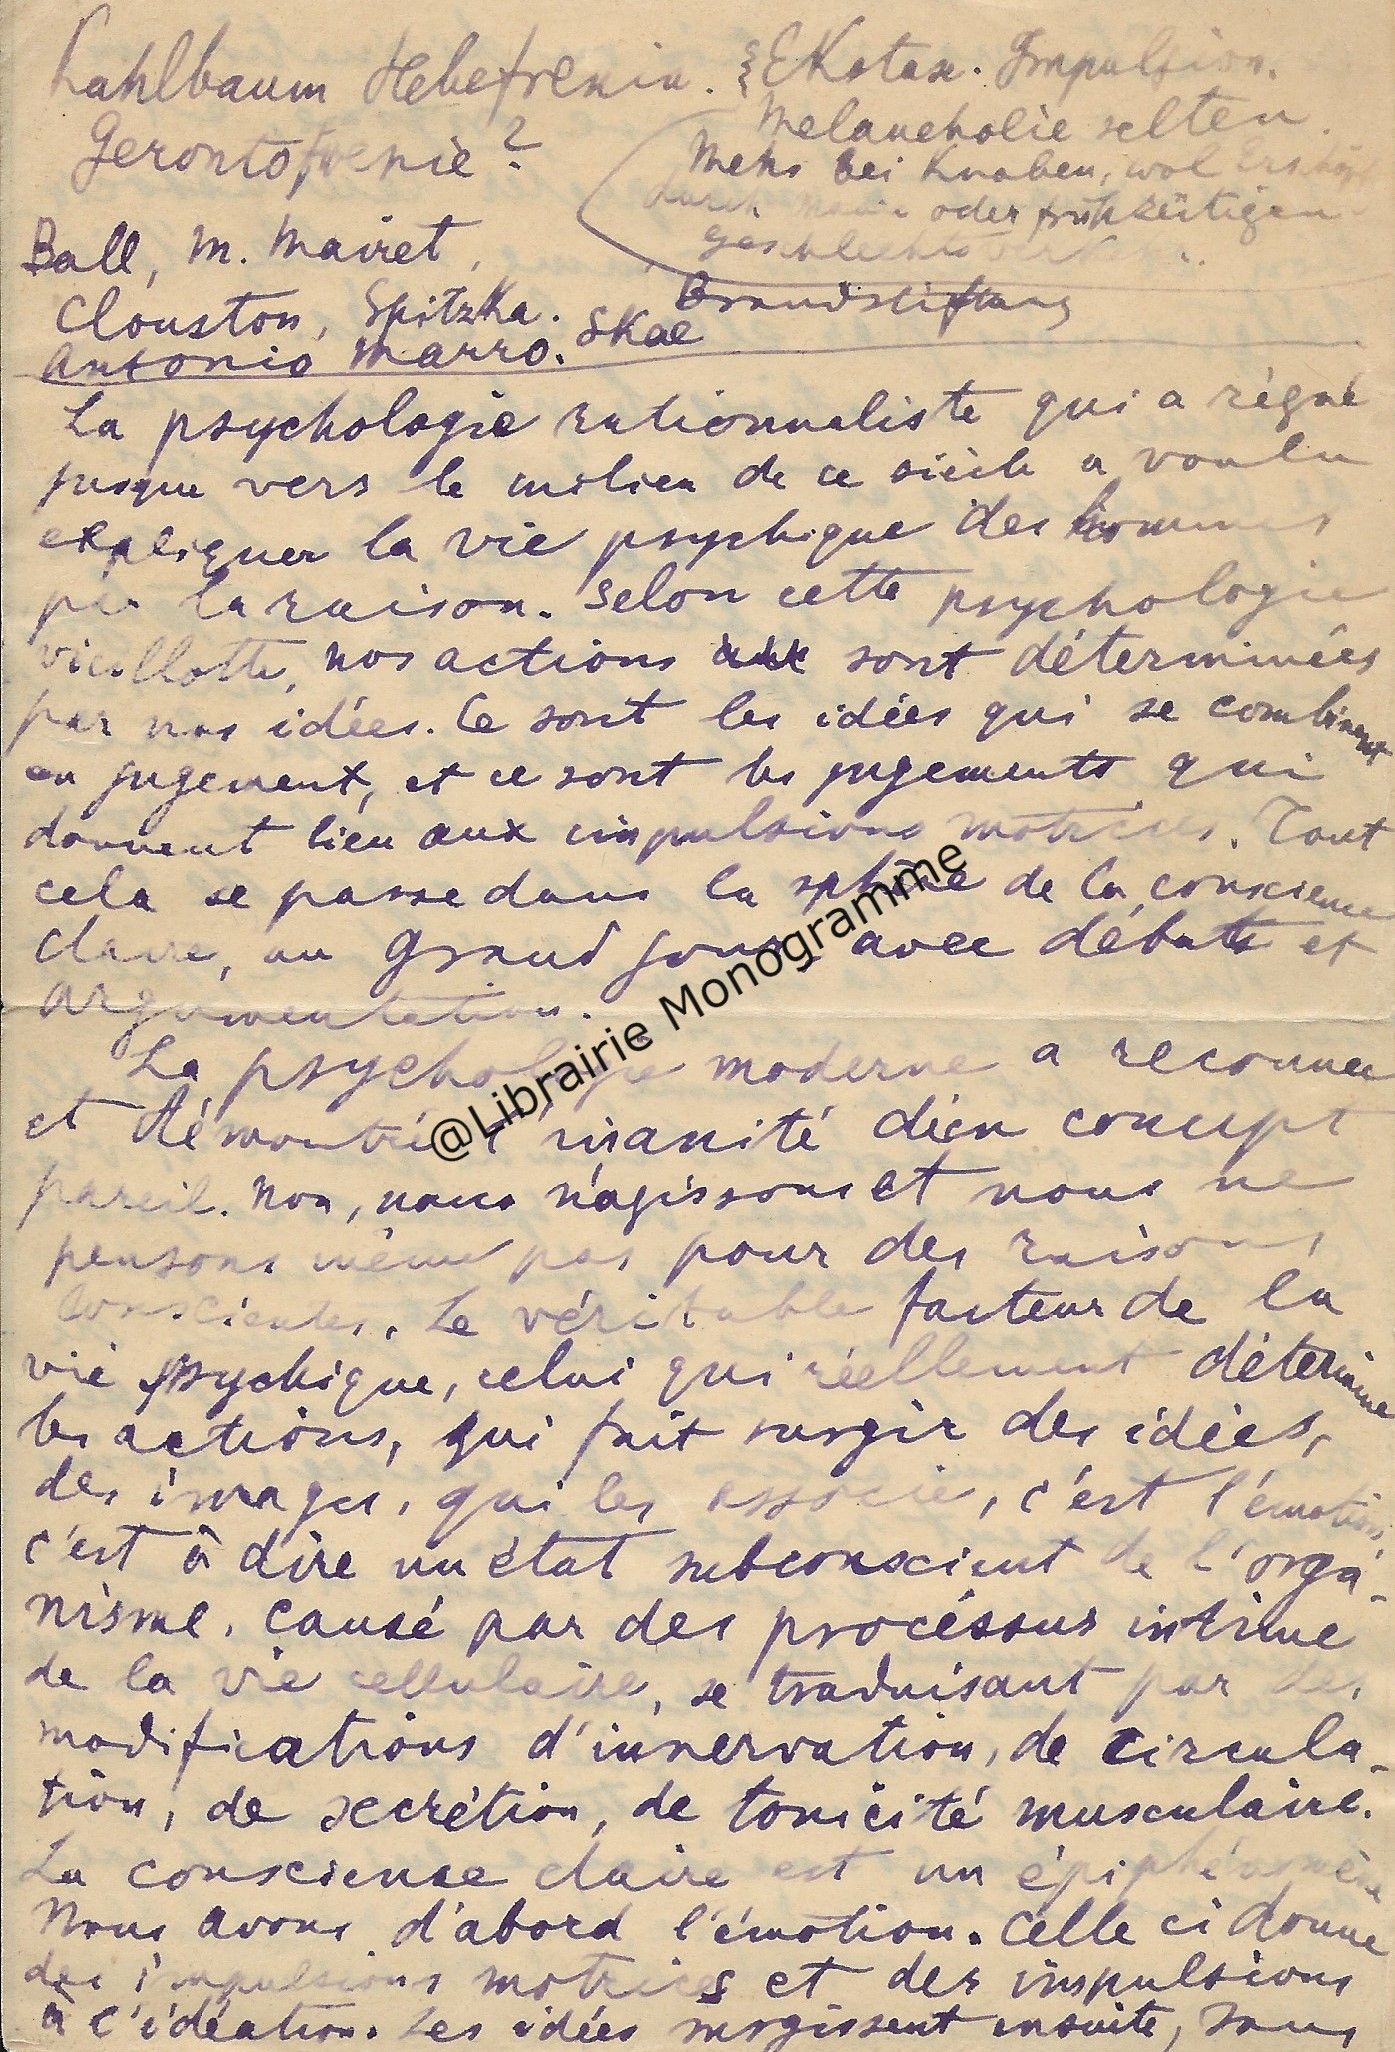 Kahlbaum Hebefrenia. Ekstase. Impulsion.
Gerontofrenie?
Melancholie selten.
Mehr bei Knaben, wol
durch oder frühzeitigen
Geschlechtsverkehr.
Brandstiftung
Ball, M. Mairet,
Clouston, Spitzka. Skae
Antonio Marro.
La psychologie rationnaliste qui a règné
jusque vers le milieu de ce siècle a voulu
expliquer la vie psychique des hommes
par la raison. Selon cette psychologie
vieillotte, nos actions sont déterminées
par nos idées. Ce sont les idées qui se combinent
en jugement, et ce sont les jugements qui
donnent lieu aux impulsions motrices. Tout
cela se passe dans la sphère de la conscience
claire, au grand jour, avec débats et
argumentation.
La psychologie moderne a reconnu
et démontré l'inanité d'un concept
pareil. Non, nous n'agissons et nous ne
pensons même pas pour des raisons
conscientes. Le véritable facteur de la
vie psychique, celui qui réellement détermine
les actions, qui fait surgir des idées,
des images, qui les associe, c'est l'émotion,
c'est à dire un état subconscient de l'orga-
nisme, causé par des procéssus intime
de la vie cellulaire, se traduisant par des
modifications d'innervation, de circula-
tion, de secrétion, de tonicité musculaire.
La conscience claire est un épiphénomène
Nous avons d'abord l'émotion. Celle ci donne
des impulsions motrices et des impulsions
à l'idéation. Les idées surgissent ensuite, sous
@Librairie Monogramme